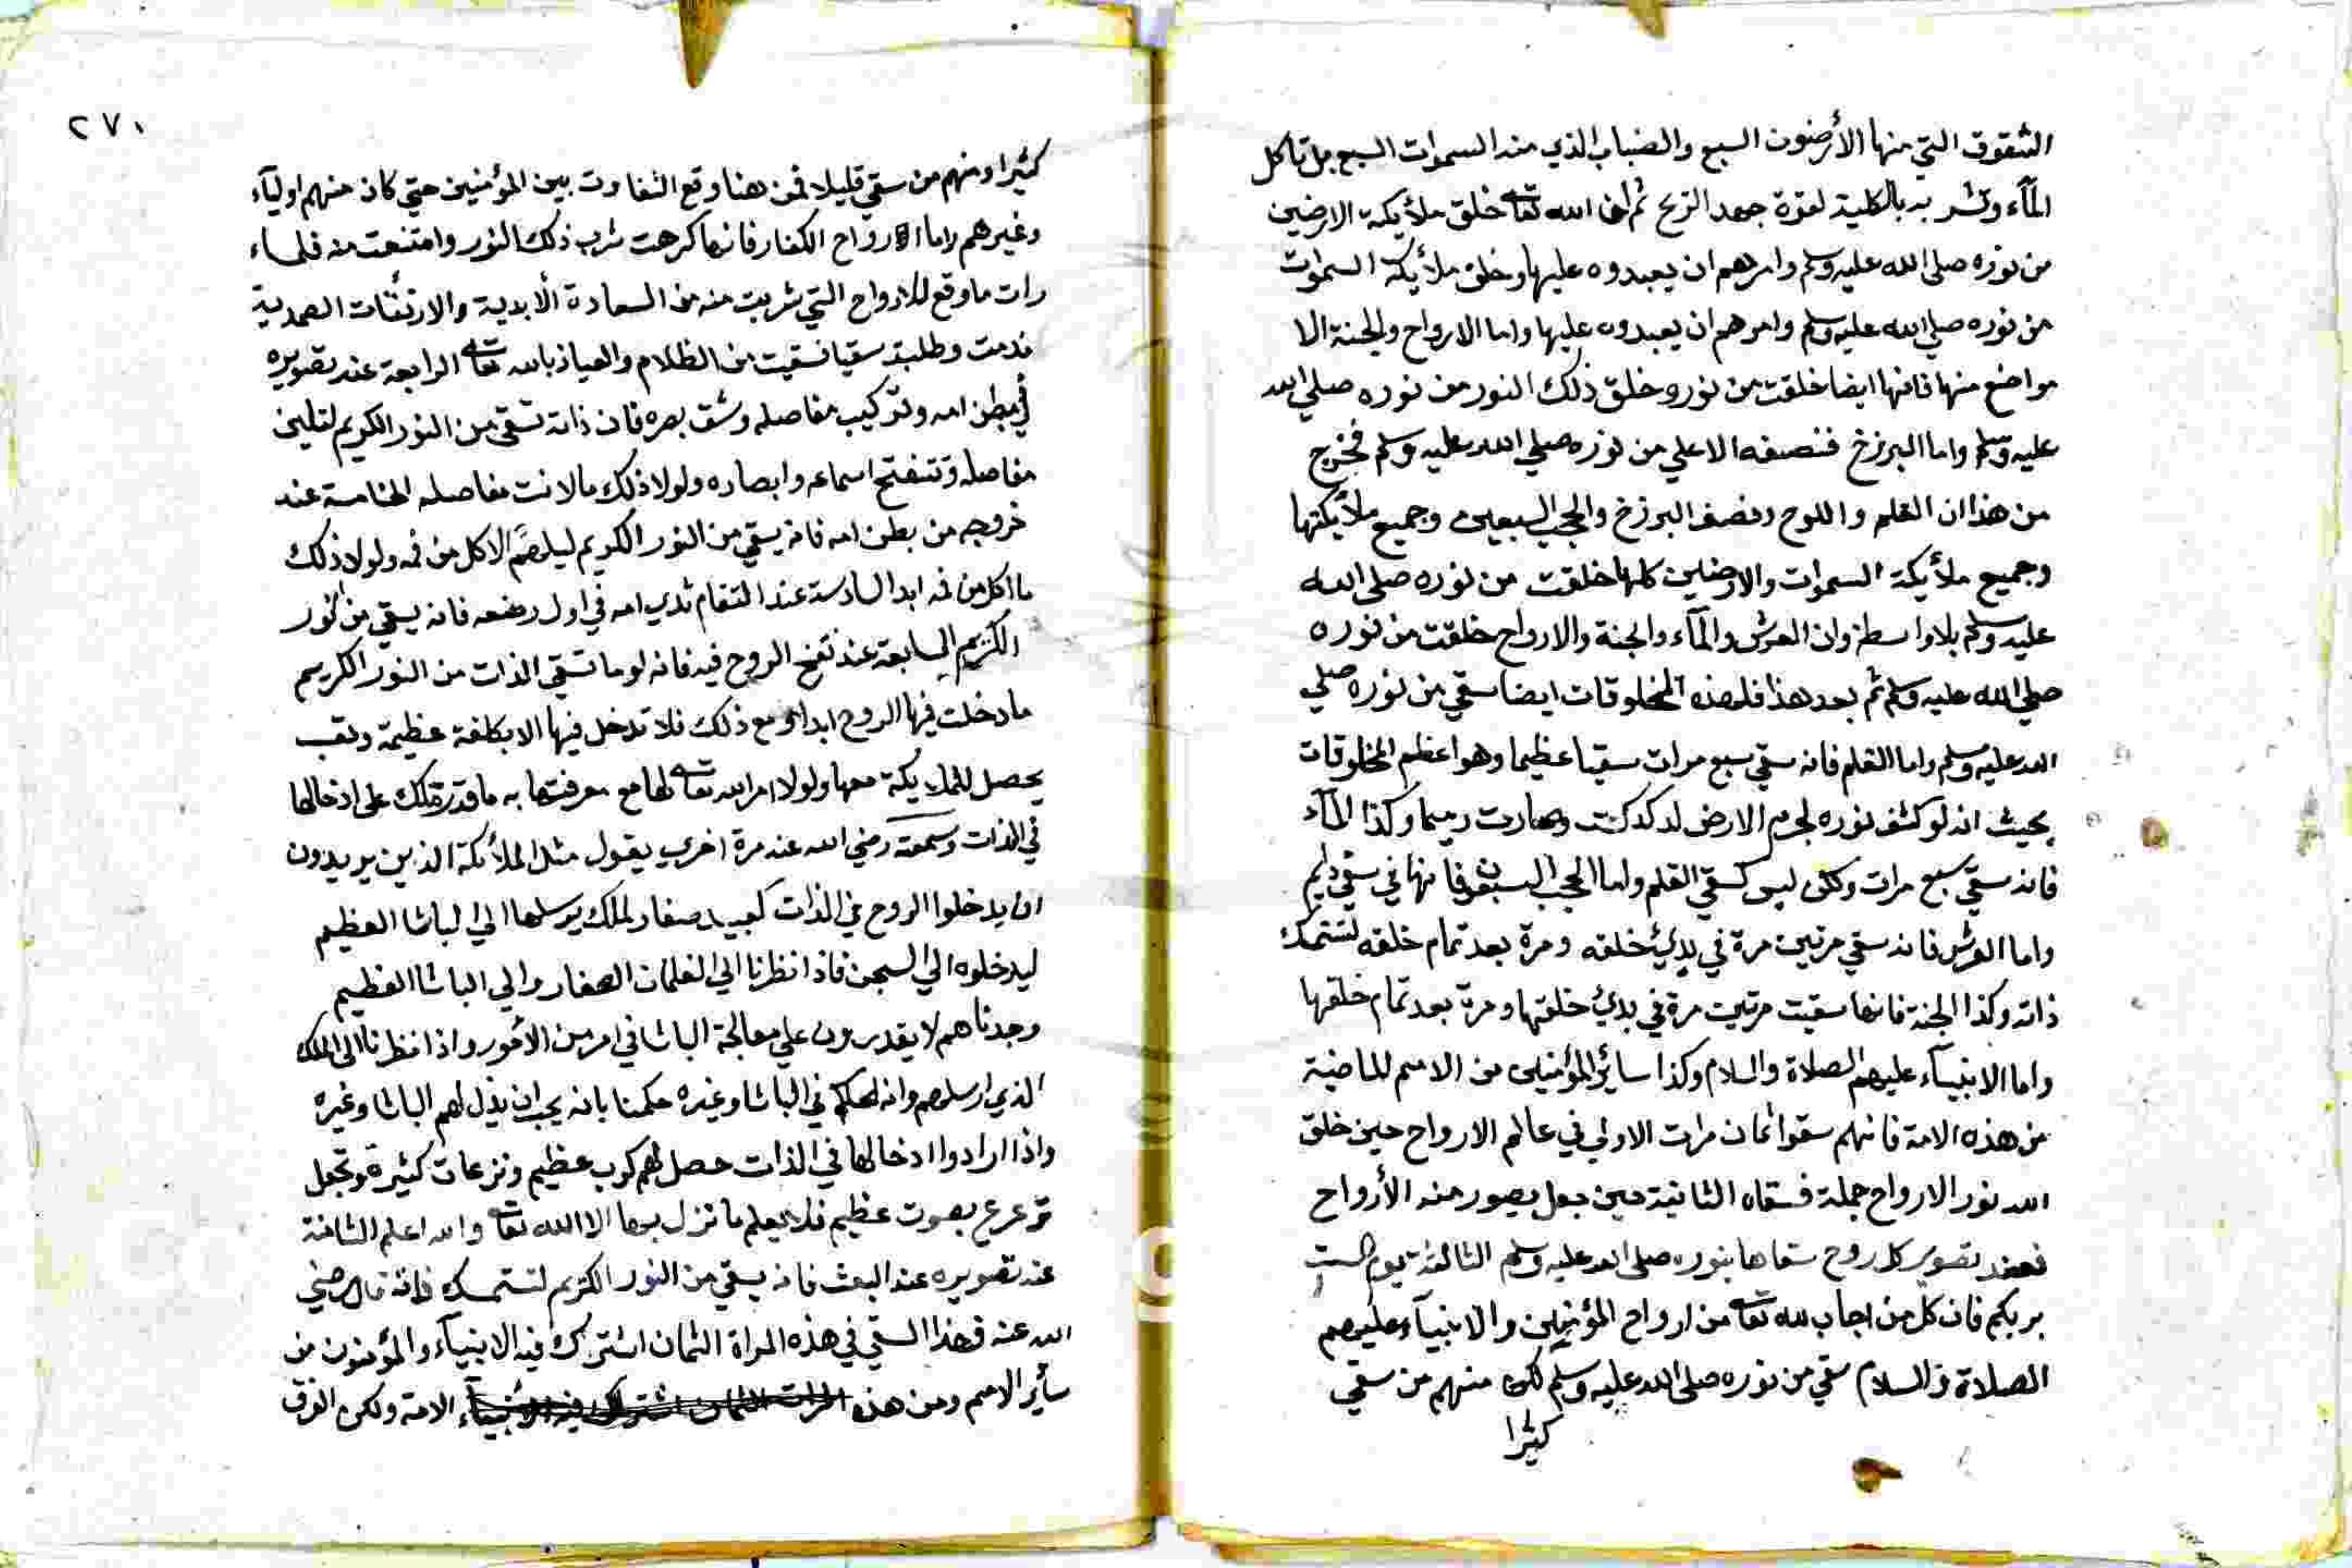 الشقوق التي منها الأرضون السبع والضباب الذي منه السموات السبع بل تاكل
المآء وتشربه بالكلية لقوة جهد الريح ثم ان الله تعالى خلق ملأيكة الارضين
من نوره صلى الله عليه وسلم وامرهم ان يعبدوه عليها وخلق ملأيكة السموات
من نوره صلي الله عليه وسلم وامرهم ان يعبدوه عليها واما الارواح والجنة الا
مواضع منها فانها ايضا خلقت من نور وخلق ذلك النور من نوره صلي الله
عليه وسلم واما البرزخ فنصفه الاعلي من نوره صلي الله عليه وسلم فخرج
من هذا ان القلم واللوح ونصف البرزخ والحجب السبعين وجميع ملأيكتها
وجميع ملأيكة السموات والارضين كلها خلقت من نوره صلى الله
عليه وسلم بلا واسطة وان العرش والمآء والجنة والارواح خلقت من نوره
صلي الله عليه وسلم ثم بعد هذا فلهذه المخلوقات ايضا سقي من نوره صلي
الله عليه وسلم واما القلم فانه سقي سبع مرات سقيا عظيما وهو اعظم المخلوقات
بحيث انه لو كشف نوره لجرم الارض لدكدكت وصارت رميما وكذا المآء
فانه سقي سبع مرات ولكن ليس كسقي القلم واما الحجب السبعون فانها في سقي دايم
واما العرش فانه سقي مرتين مرة في بدئ خلقه ومرة بعد تمام خلقه لتستمسك
ذاته وكذا الجنة فانها سقيت مرتين مرة في بدئ خلقها ومرة بعد تمام خلقها
واما الانبيآء عليهم الصلاة والسلام وكذا سائر المؤمنين من الامم الماضية
من هذه الامة فانهم سقوا ثمان مرات الاولي في عالم الارواح حين خلق
الله نور الارواح جملة فسقاه الثانية حين جعل يصور منه الأرواح
فعند تصوير كل روح سقاها بنوره صلى الله عليه وسلم الثالثة يوم الست
بربكم فان كل من اجاب لله تعالى من ارواح المؤمنين والانبيآء عليهم
الصلاة والسلام سقي من نوره صلى الله عليه وسلم لكن منهم من سقي
كثيرا
٢٧٠
كثيرا ومنهم من سقي قليلا فمن هنا وقع التفاوت بين المؤمنين حتي كان منهم اوليآء
وغيرهم واما ارواح الكفار فانها كرهت شرب ذلك النور وامتنعت منه فلما
رات ما وقع للارواح التي شربت منه من السعادة الأبدية والارتقات الصمدية
ندمت وطلبت سقيا فسقيت من الظلام والعياذ بالله تعالى الرابعة عند تصويره
في بطن امه وتركيب مفاصله وشق بصره فان ذاته تسقى من النور الكريم لتلين
مفاصله وتنفتح اسماعه وابصاره ولولا ذلك ما لانت مفاصله الخامسة عند
خروجه من بطن امه فانه يسقي من النور الكريم ليلهم الاكل من فمه ولولا ذلك
ما اكل من فمه ابدا السادسة عند التقام ثدي امه في اول رضعه فانه يسقي من النور
الكريم السابعة عند نفخ الروح فيه فانه لو ما تسقي الذات من النور الكريم
ما دخلت فيها الروح ابدا ومع ذلك فلا تدخل فيها الا بكلفة عظيمة وتعب
يحصل للملايكة معها ولولا امر الله تعالى لها مع معرفتها به ما قدر ملك على ادخالها
في الذات وسمعته رضي الله عنه مرة اخري يقول مثل الملأئكة الذين يريدون
ان يدخلوا الروح في الذات كعبيد صغار لملك يرسلها الي الباشا العظيم
ليدخلوه الي السجن فاذا نظرنا الي الغلمان الصغار والي الباشا العظيم
وجدناهم لا يقدرون علي معالجة الباشا في امر من الأمور واذا نظرنا الى الملك
الذي ارسلهم وانه الحكم في الباشا وغيره حكمنا بانه يجب ان يذل لهم الباشا وغيره
واذا ارادوا ادخالها في الذات حصل لهم كرب عظيم ونزعات كثيرة وتجعل
ترعرع بصوت عظيم فلا يعلم ما نزل بها الا الله تعالى والله اعلم الثامنة
عند تصويره عند البعث فانه يسقي من النور الكريم لتستمسك ذاته قال رضي
الله عنه فهذا السقي في هذه المراة الثمان اشترك فيه الانبيآء والمؤمنون من
سأير الامم ومن هذه المرات الثمان اشترك فيه الانبيآء الامة ولكن الفرق